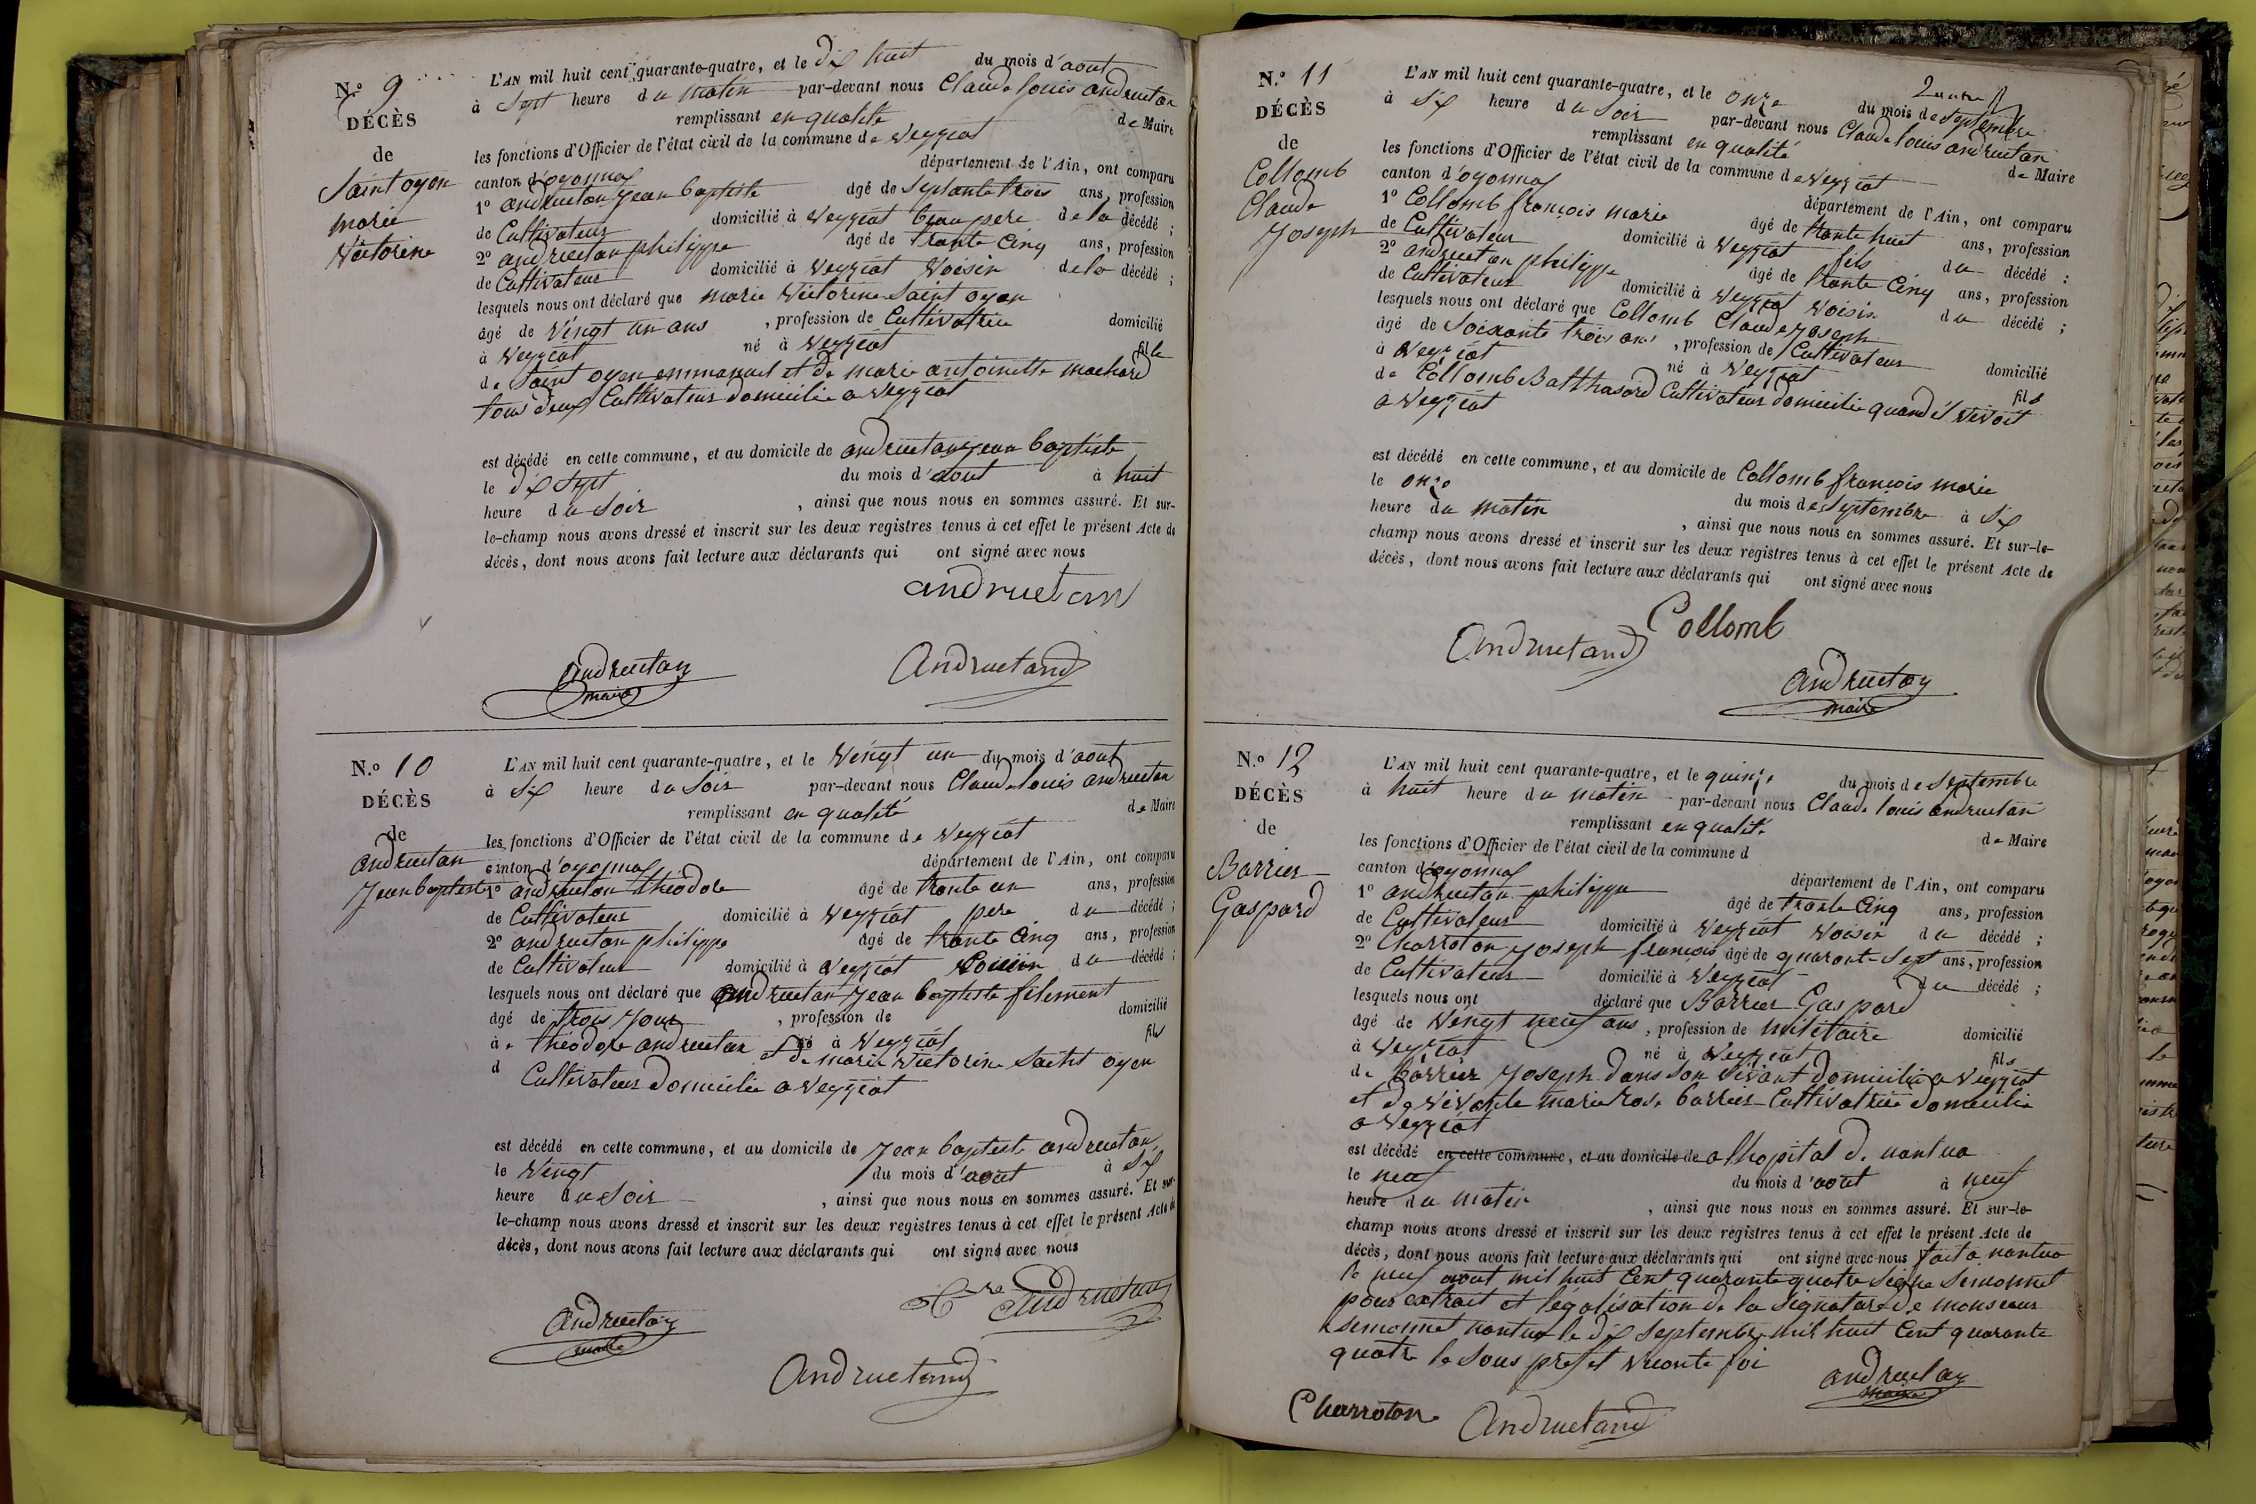 N.º 9
DÉCÈS
de
Saint oyen
marie
Victorine
L'AN mil huit cent quarante-quatre, et le dix huit du mois d'aout
à sept heure du matin par-devant nous Claude louis andruetan
remplissant en qualité de Maire
les fonctions d'Officier de l'état civil de la commune de Veyziat
canton d'oyonnax département de l'Ain, ont comparu
1º andruetan jean baptiste âgé de septante trois ans, profession
de Cultivateur domicilié à Veyziat beau pere de la décédé ;
2º andruetan philippe âgé de trante cinq ans, profession
de Cultivateur domicilié à Veyziat Voisin de la décédé ;
lesquels nous ont déclaré que marie Victorine Saint oyen
âgé de Vingt un ans , profession de Cultivatrice domicilié
à Veyziat né à Veyziat fille
de Saint oyen emmanuel et de marie antoinette machard
tous deux Cultivateur domicilie a Veyziat
est décédé en cette commune, et au domicile de andruetan jean baptiste
le dix sept du mois d'aout à huit
heure du soir , ainsi que nous nous en sommes assuré. Et sur-
le-champ nous avons dressé et inscrit sur les deux registres tenus à cet effet le présent Acte de
décès, dont nous avons fait lecture aux déclarants qui ont signé avec nous
andruetan
andruetan
maire
Andruetand
N.º 10
DÉCÈS
de
andruetan
Jean baptiste
L'AN mil huit cent quarante-quatre, et le Vingt un du mois d'aout
à six heure du soir par-devant nous Claude louis andruetan
remplissant en qualité de Maire
les fonctions d'Officier de l'état civil de la commune de Veyziat
canton d'oyonnax département de l'Ain, ont comparu
1º andruetan théodore âgé de trante un ans, profession
de Cultivateur domicilié à Veyziat pere du décédé ;
2º andruetan philippe âgé de trante cinq ans, profession
de Cultivateur domicilié à Veyziat du décédé ;
lesquels nous ont déclaré que andruetan jean baptiste filement
âgé de trois jour , profession de domicilié
à théodore andruetan né à Veyziat fils
d et de marie Victorine Saint oyen
Cultivateur domicilie a Veyziat
est décédé en cette commune, et au domicile de jean baptiste andruetan
le Vingt du mois d'aout à six
heure du soir , ainsi que nous nous en sommes assuré. Et sur-
le-champ nous avons dressé et inscrit sur les deux registres tenus à cet effet le présent Acte de
décès, dont nous avons fait lecture aux déclarants qui ont signé avec nous
Andruetan
andruetan
maire
Andruetand
N.º 11
DÉCÈS
de
Collomb
Claude
Joseph
L'AN mil huit cent quarante-quatre, et le onze du mois de septembre
à six heure du soir par-devant nous Claude louis andruetan
remplissant en qualité de Maire
les fonctions d'Officier de l'état civil de la commune de Veyziat
canton d'oyonnax département de l'Ain, ont comparu
1º Collomb françois marie âgé de trante huit ans, profession
de Cultivateur domicilié à Veyziat fils du décédé ;
2º andruetan philippe âgé de trante cinq ans, profession
de Cultivateur domicilié à Veyziat Voisin du décédé ;
lesquels nous ont déclaré que Collomb Claude joseph
âgé de soixante trois ans , profession de Cultivateur domicilié
à Veyziat né à Veyziat fils
de Collomb Balthasard Cultivateur domicilie quand il Vivoit
a Veyziat
est décédé en cette commune, et au domicile de Collomb françois marie
le onze du mois de septembre à six
heure du matin , ainsi que nous nous en sommes assuré. Et sur-le-
champ nous avons dressé et inscrit sur les deux registres tenus à cet effet le présent Acte de
décès, dont nous avons fait lecture aux déclarants qui ont signé avec nous
Collomb
Andruetand
andruetan
maire
N.º 12
DÉCÈS
de
Barrier
Gaspard
L'AN mil huit cent quarante-quatre, et le quinze du mois de septembre
à huit heure du matin par-devant nous Claude louis andruetan
remplissant en qualité de Maire
les fonctions d'Officier de l'état civil de la commune d
canton d'oyonnax département de l'Ain, ont comparu
1º andruetan philippe âgé de trante cinq ans, profession
de Cultivateur domicilié à Veyziat Voisin du décédé ;
2º Charroton joseph françois âgé de quarante-sept ans, profession
de Cultivateur domicilié à Veyziat du décédé ;
lesquels nous ont déclaré que Barrier Gaspard
âgé de Vingt neuf ans , profession de militaire domicilié
à Veyziat né à Veyziat fils
de barrier joseph dans son vivant domicilie a Veyziat
et de vivante marie rose barrier Cultivatrice domicilie
a Veyziat
est décédé en cette commune, et au domicile de a lhopital de nantua
le neuf du mois d'aout à neuf
heure du matin , ainsi que nous nous en sommes assuré. Et sur-le-
champ nous avons dressé et inscrit sur les deux registres tenus à cet effet le présent Acte de
décès, dont nous avons fait lecture aux déclarants qui ont signé avec nous fait a nantua
le neuf aout mil huit Cent quarante quatre signe Semonnet
pour extrait et légalisation de la signature de monsieur
semonnet nantua le dix septembre mil huit Cent quarante
quatre le sous prefet
andruetan
maire
Charroton
Andruetand